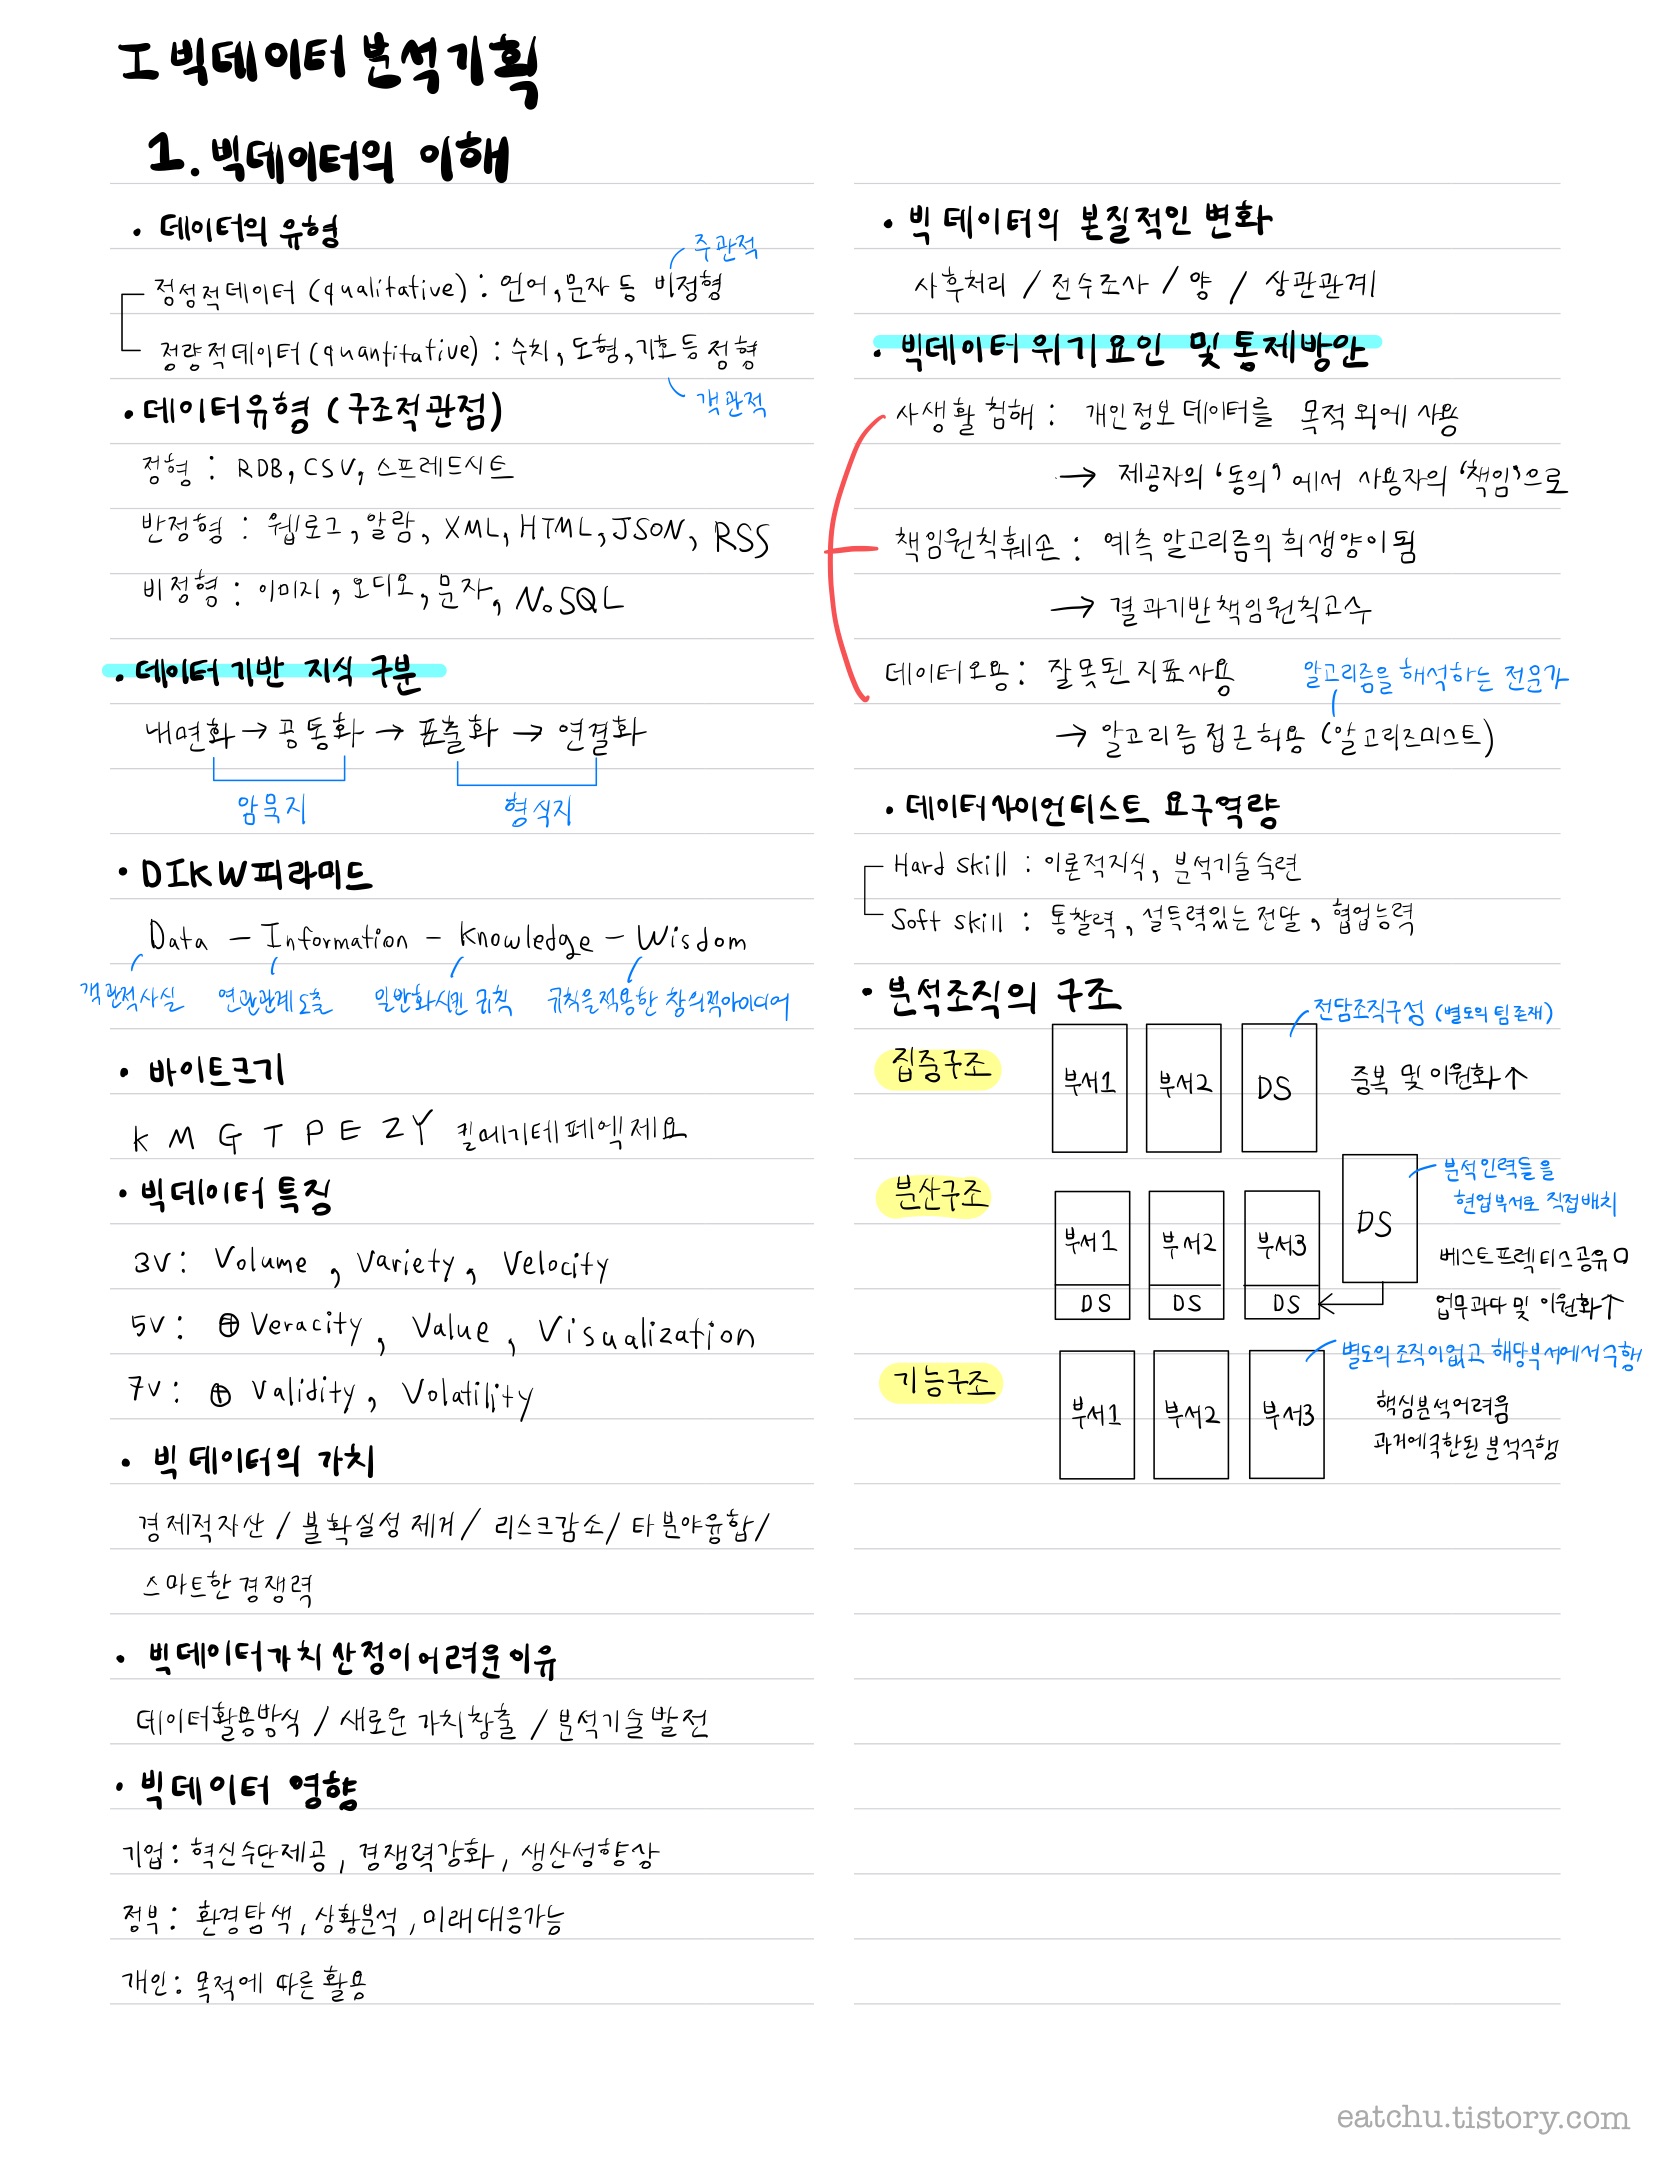 I 빅데이터 분석기획
1. 빅데이터의 이해
• 데이터의 유형
주관적
정성적데이터 (qualitative) : 언어, 문자 등 비정형
정량적데이터 (quantitative) : 수치, 도형, 기호 등 정형
객관적
• 데이터유형 (구조적관점)
정형 : RDB, CSV, 스프레드시트
반정형 : 웹로그, 알람, XML, HTML, JSON, RSS
비정형 : 이미지, 오디오, 문자, NoSQL
• 데이터 기반 지식 구분
내면화 → 공통화 → 표출화 → 연결화
암묵지 형식지
• DIKW 피라미드
Data – Information – Knowledge – Wisdom
객관적사실 연관관계도출 일반화시킨 규칙 규칙을적용한 창의적아이디어
• 바이트크기
K M G T P E Z Y 킬메기테페엑제요
• 빅데이터 특징
3V : Volume, Variety, Velocity
5V : ⊕ Veracity, Value, Visualization
7V : ⊕ Validity, Volatility
• 빅데이터의 가치
경제적자산 / 불확실성 제거 / 리스크감소 / 타분야융합 /
스마트한 경쟁력
• 빅데이터가치 산정이 어려운이유
데이터활용방식 / 새로운 가치창출 / 분석기술발전
• 빅데이터 영향
기업 : 혁신수단제공, 경쟁력강화, 생산성향상
정부 : 환경탐색, 상황분석, 미래대응가능
개인 : 목적에 따른 활용
• 빅데이터의 본질적인 변화
사후처리 / 전수조사 / 양 / 상관관계
• 빅데이터 위기요인 및 통제방안
사생활침해 : 개인정보 데이터를 목적 외에 사용
→ 제공자의 '동의'에서 사용자의 '책임'으로
책임원칙훼손 : 예측 알고리즘의 희생양이됨
→ 결과기반책임원칙고수
데이터오용 : 잘못된 지표사용
알고리즘을 해석하는 전문가
→ 알고리즘접근허용 (알고리즈미스트)
• 데이터사이언티스트 요구역량
Hard skill : 이론적지식, 분석기술숙련
Soft skill : 통찰력, 설득력있는 전달, 협업능력
• 분석조직의 구조
전담조직구성 (별도의 팀 존재)
집중구조 부서1 부서2 DS 중복 및 이원화↑
분석인력들을
현업부서로 직접배치
분산구조 부서1 부서2 부서3 DS
DS DS DS
베스트프렉티스공유
업무과다 및 이원화↑
별도의 조직이없고 해당부서에서수행
기능구조 부서1 부서2 부서3
핵심분석어려움
과거에국한된 분석수행
eatchu.tistory.com